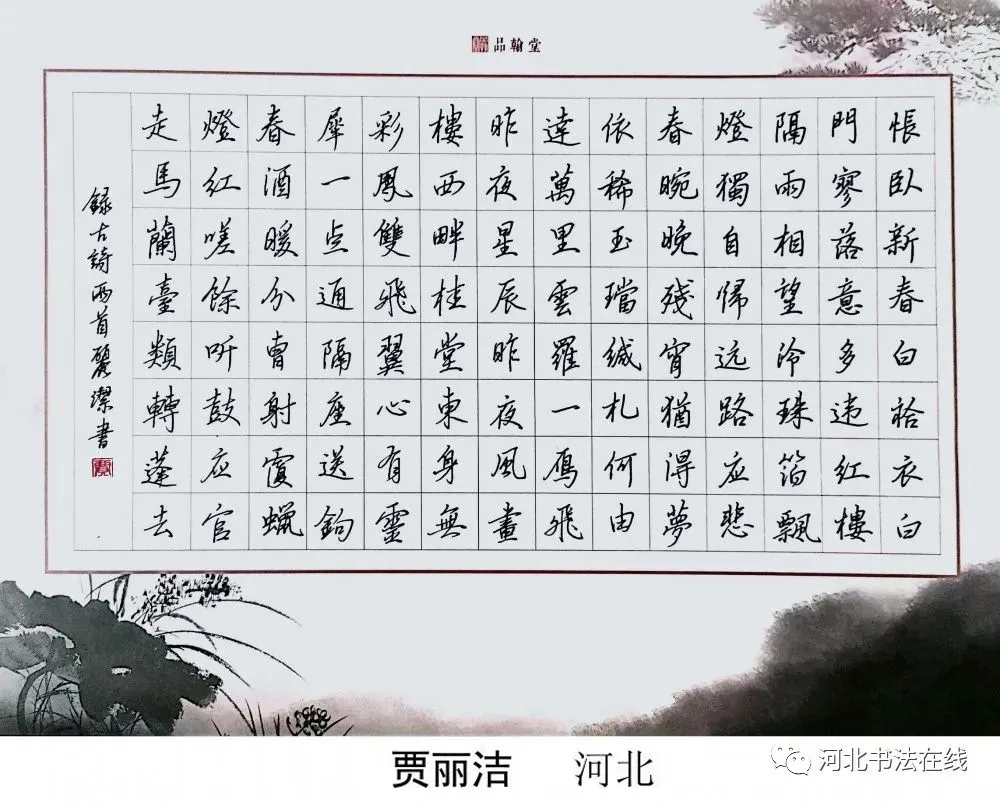 品翰堂
悵臥新春白袷衣白
門寥落意多违紅樓
隔雨相望冷珠箔飄
燈獨自帰远路应悲
春晼晚残宵猶得夢
依稀玉璫缄札何由
達萬里雲羅一雁飛
昨夜星辰昨夜風畫
樓西畔桂堂東身無
彩鳳雙飛翼心有靈
犀一点通隔座送鉤
春酒暖分曹射覆蠟
燈紅嗟餘听鼓应官
走馬蘭臺類轉蓬去
録古詩两首麗潔書
贾丽洁 河北
河北书法在线